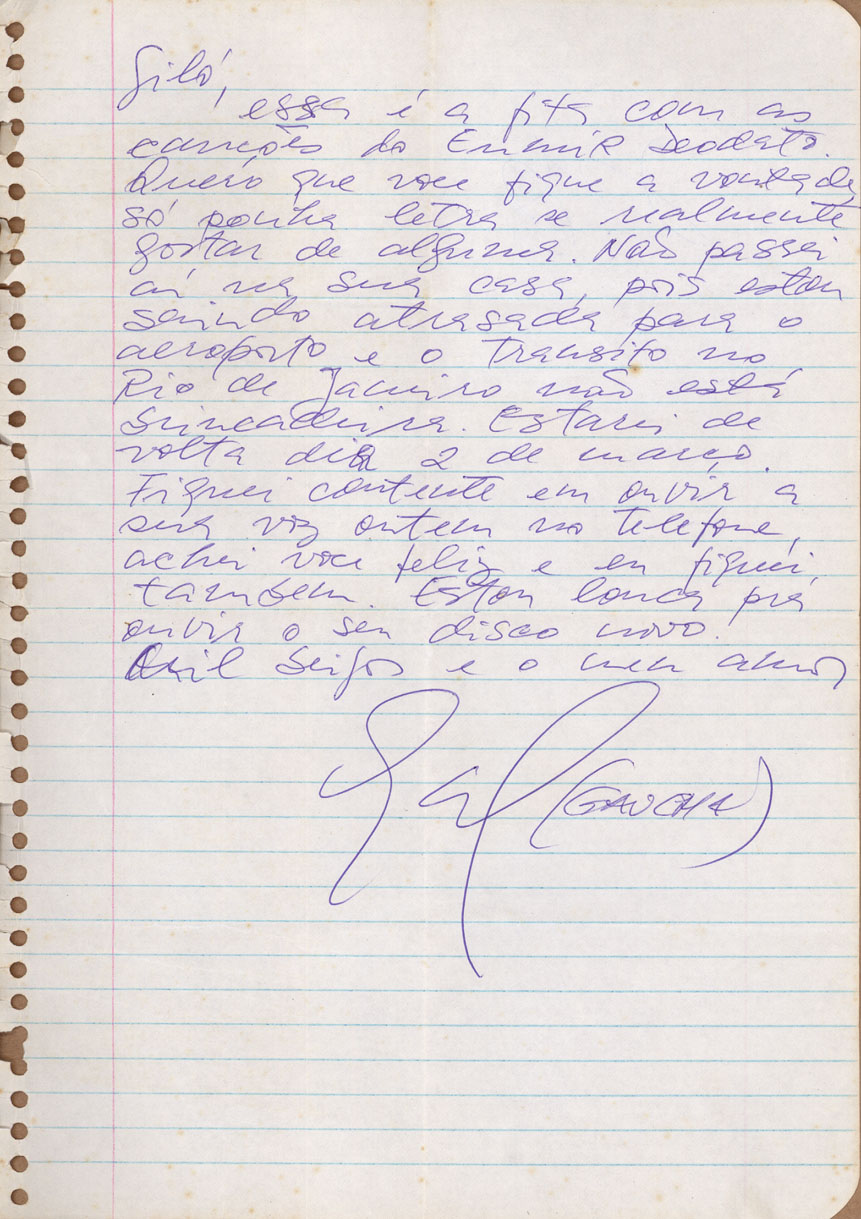 Giló,
essa é a fita com as
canções do Eumir Deodato.
Quero que voce fique a vontade,
só ponha letra se realmente
gostar de alguma. Não passei
aí na sua casa, pois estou
saindo atrasada para o
aeroporto e o transito no
Rio de Janeiro não está
brincadeira. Estarei de
volta dia 2 de março.
Fiquei contente em ouvir a
sua voz ontem no telefone,
achei voce feliz e eu fiquei
também. Estou louca pra
ouvir o seu disco novo.
Mil beijos e o meu amor
Gal (GAUCHA)